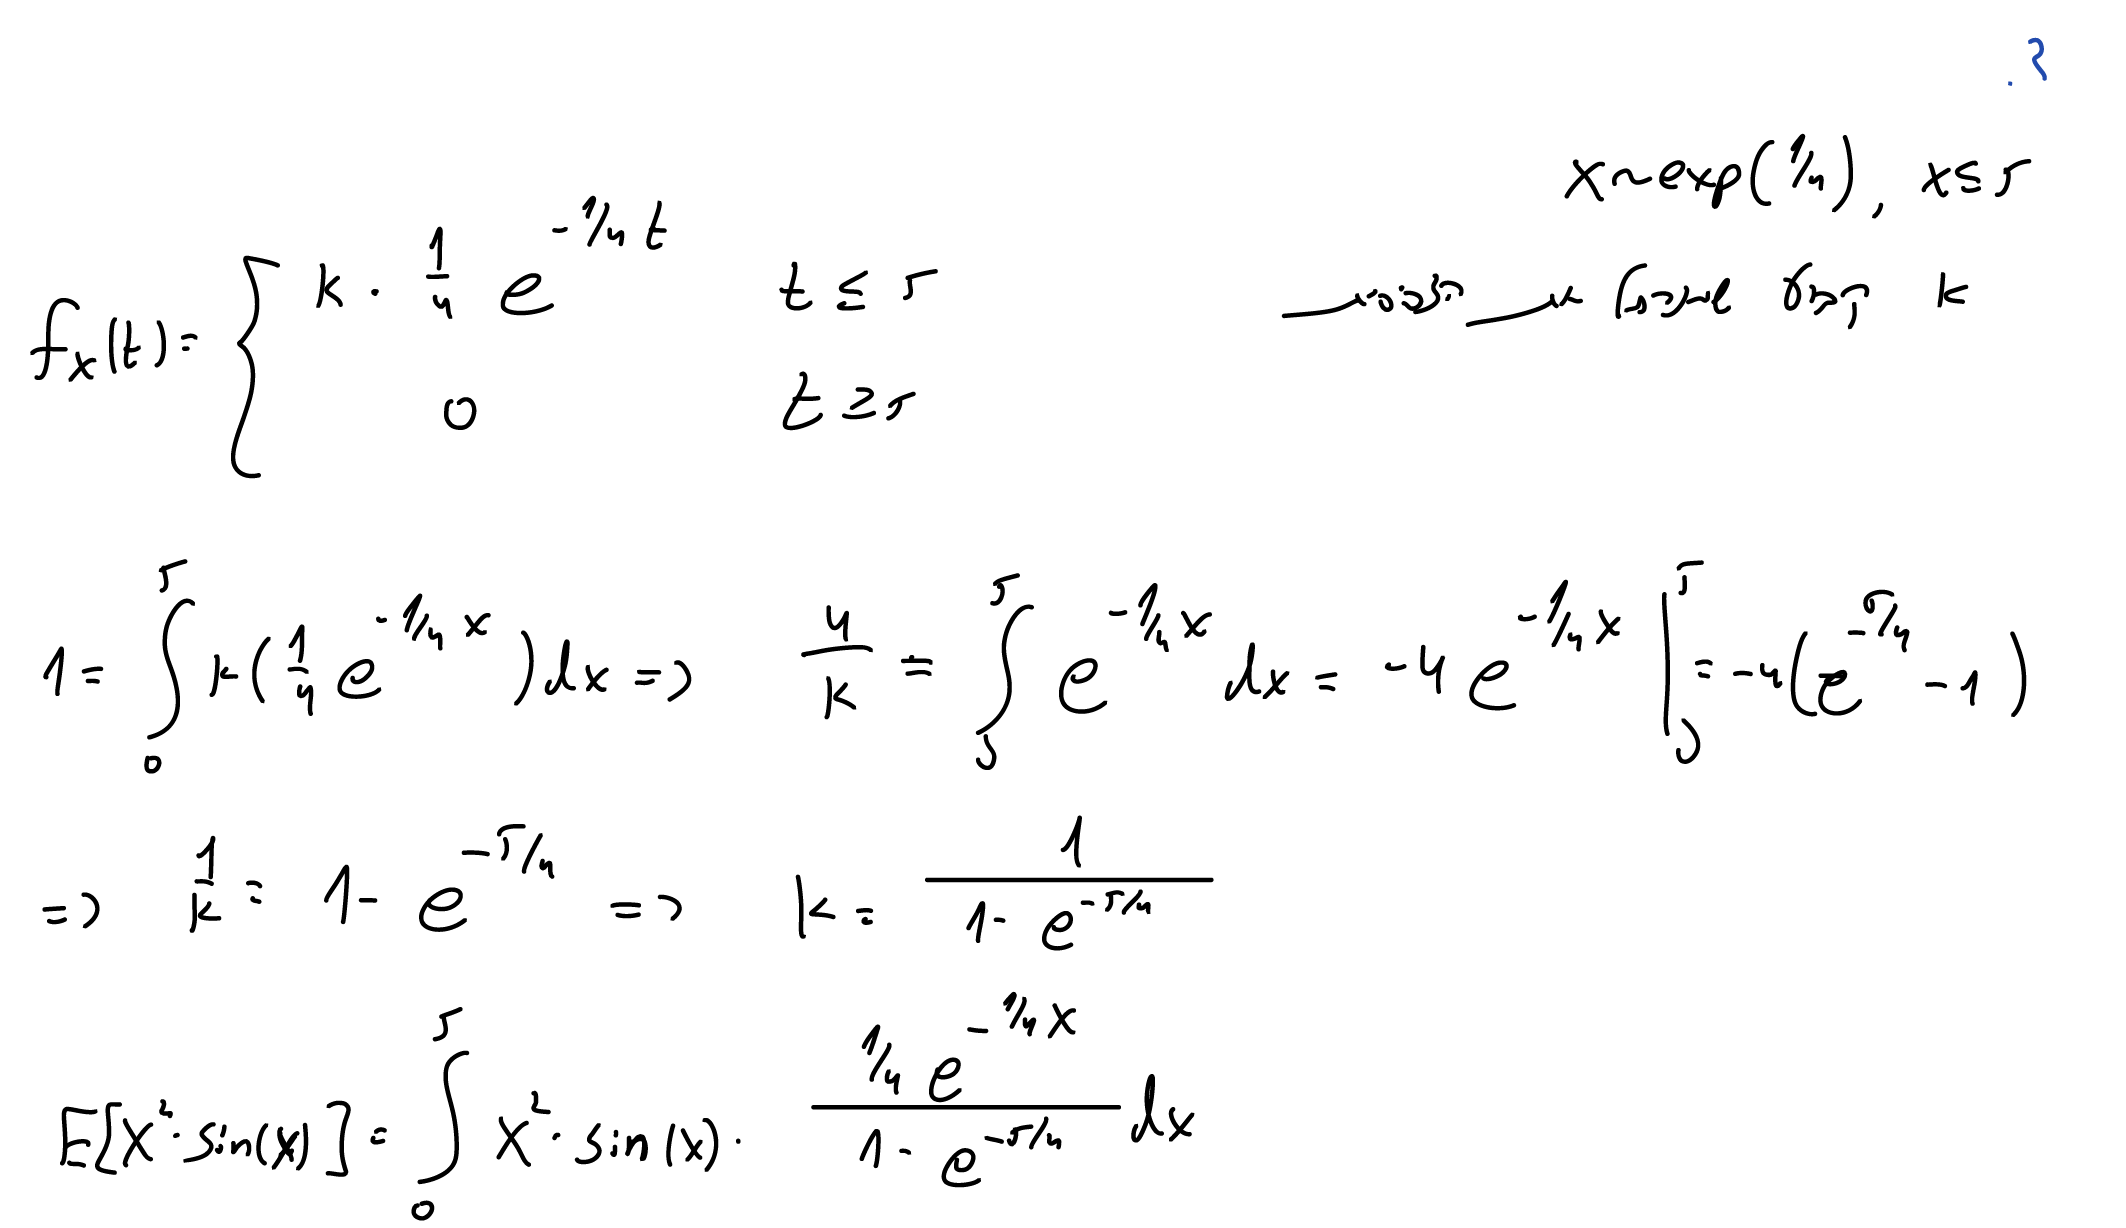 .2
x~exp(1/4), x≤5
k
f_x(t) = { k · 1/4 e^{-1/4 t}   t ≤ 5
0   t ≥ 5
1 = ∫_0^5 k(1/4 e^{-1/4 x})dx => 4/k = ∫_0^5 e^{-1/4 x} dx = -4 e^{-1/4 x} |_0^5 = -4(e^{-5/4} - 1)
=> 1/k = 1 - e^{-5/4} => k = 1/(1 - e^{-5/4})
E[X²·sin(x)] = ∫_0^5 x²·sin(x)· (1/4 e^{-1/4 x})/(1 - e^{-5/4}) dx